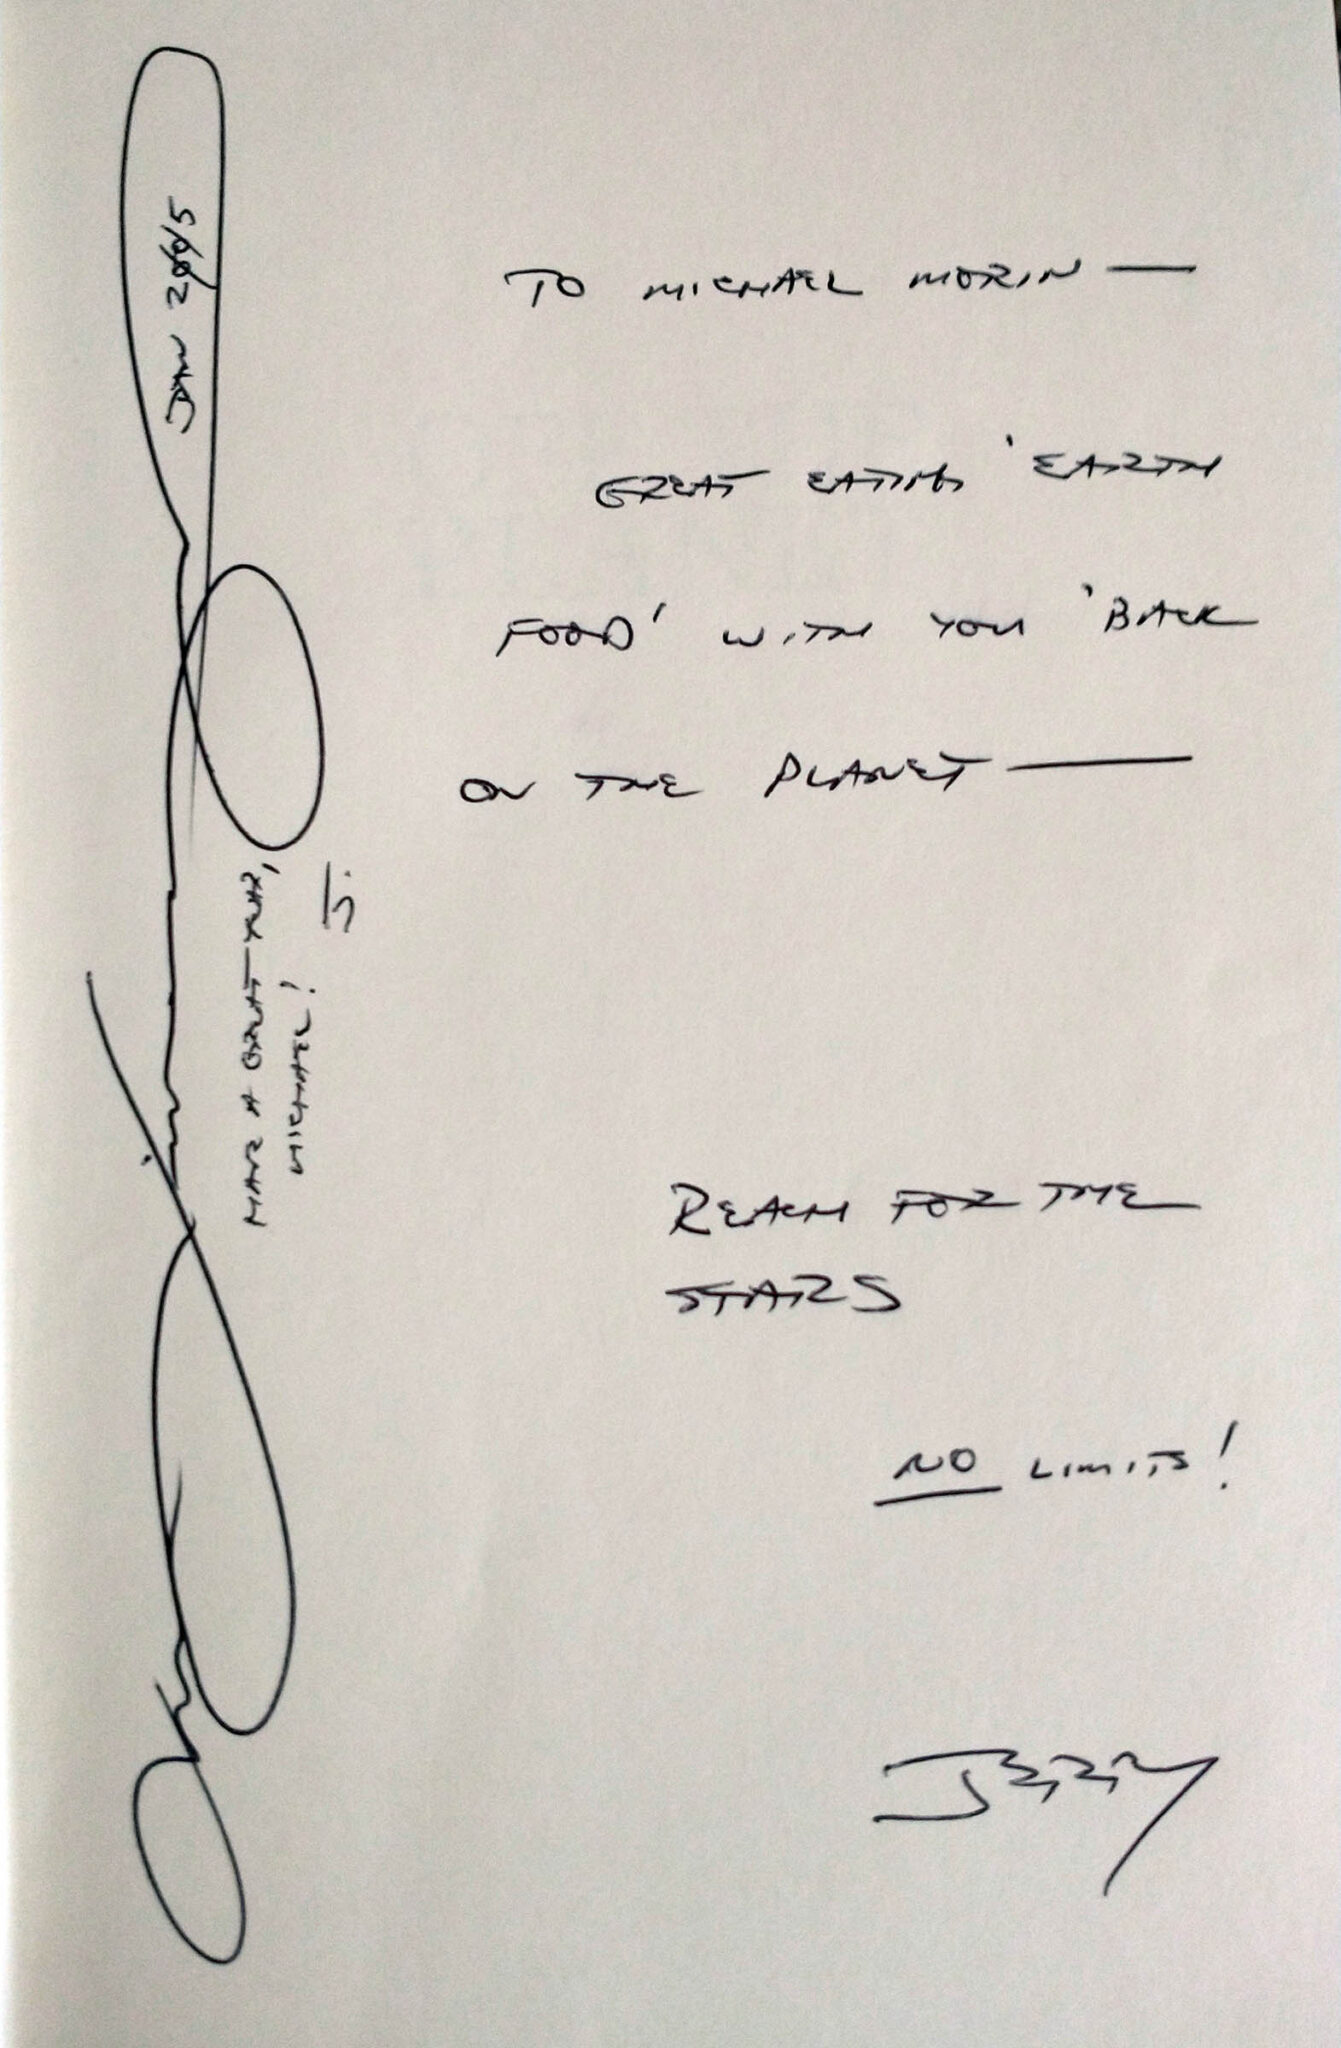 TO MICHAEL MORIN —
GREAT EATING 'EARTH
FOOD' WITH YOU 'BACK
ON THE PLANET —
REACH FOR THE
STARS
NO LIMITS!
JERRY
JAN 2005
HAVE A GREAT YEAR,
MICHAEL!
J.